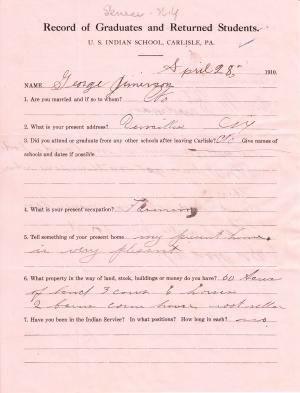 Seneca - N.Y.
Record of Graduates and Returned Students.
U. S. INDIAN SCHOOL, CARLISLE, PA.
April 28, 1910.
NAME George Jimerson
1. Are you married and if so to whom? No
2. What is your present address? N.Y.
3. Did you attend or graduate from any other schools after leaving Carlisle? No Give names of
schools and dates if possible.
4. What is your present occupation? Farming
5. Tell something of your present home. my present home
is very pleasent
6. What property in the way of land, stock, buildings or money do you have? 60 Acres
of land 3 cows 6 horses
2 barns corn house root cellar
7. Have you been in the Indian Service? In what positions? How long in each? no